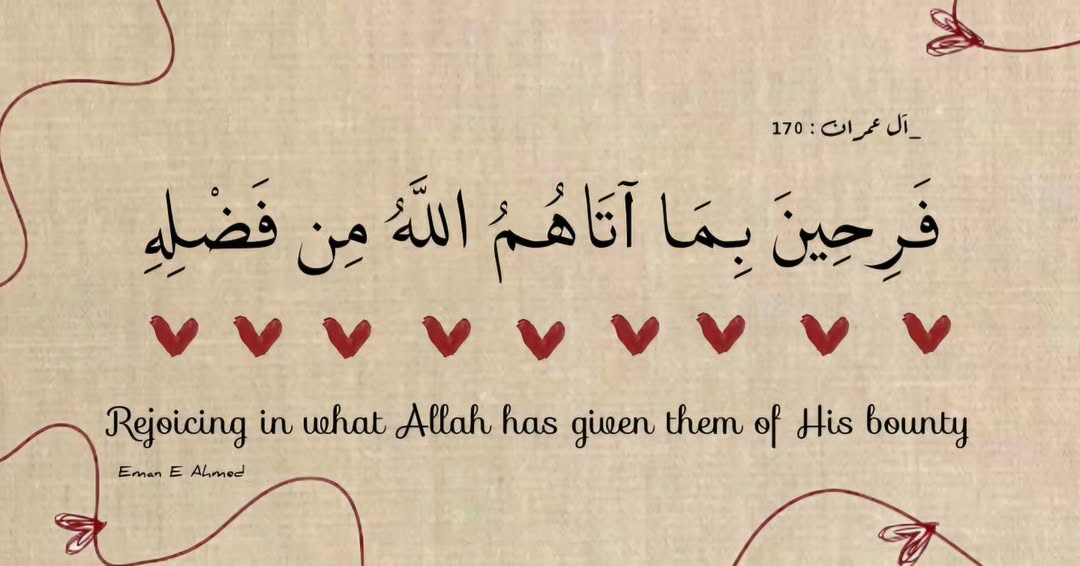 _آل عمران : 170
فَرِحِينَ بِمَا آتَاهُمُ اللَّهُ مِن فَضْلِهِ
Rejoicing in what Allah has given them of His bounty
Eman E Ahmed